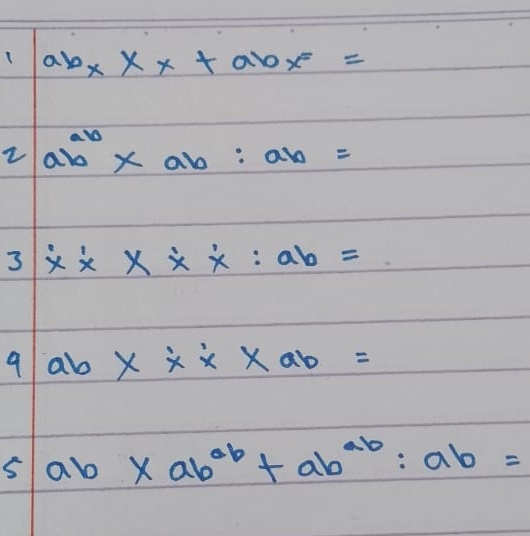 1 abₓ × x + abx⁼ =
2 ab^ab × ab : ab =
3 ẋ ẋ × ẋ ẋ : ab =
4 ab × ẋ ẋ × ab =
5 ab × ab^ab + ab^ab : ab =